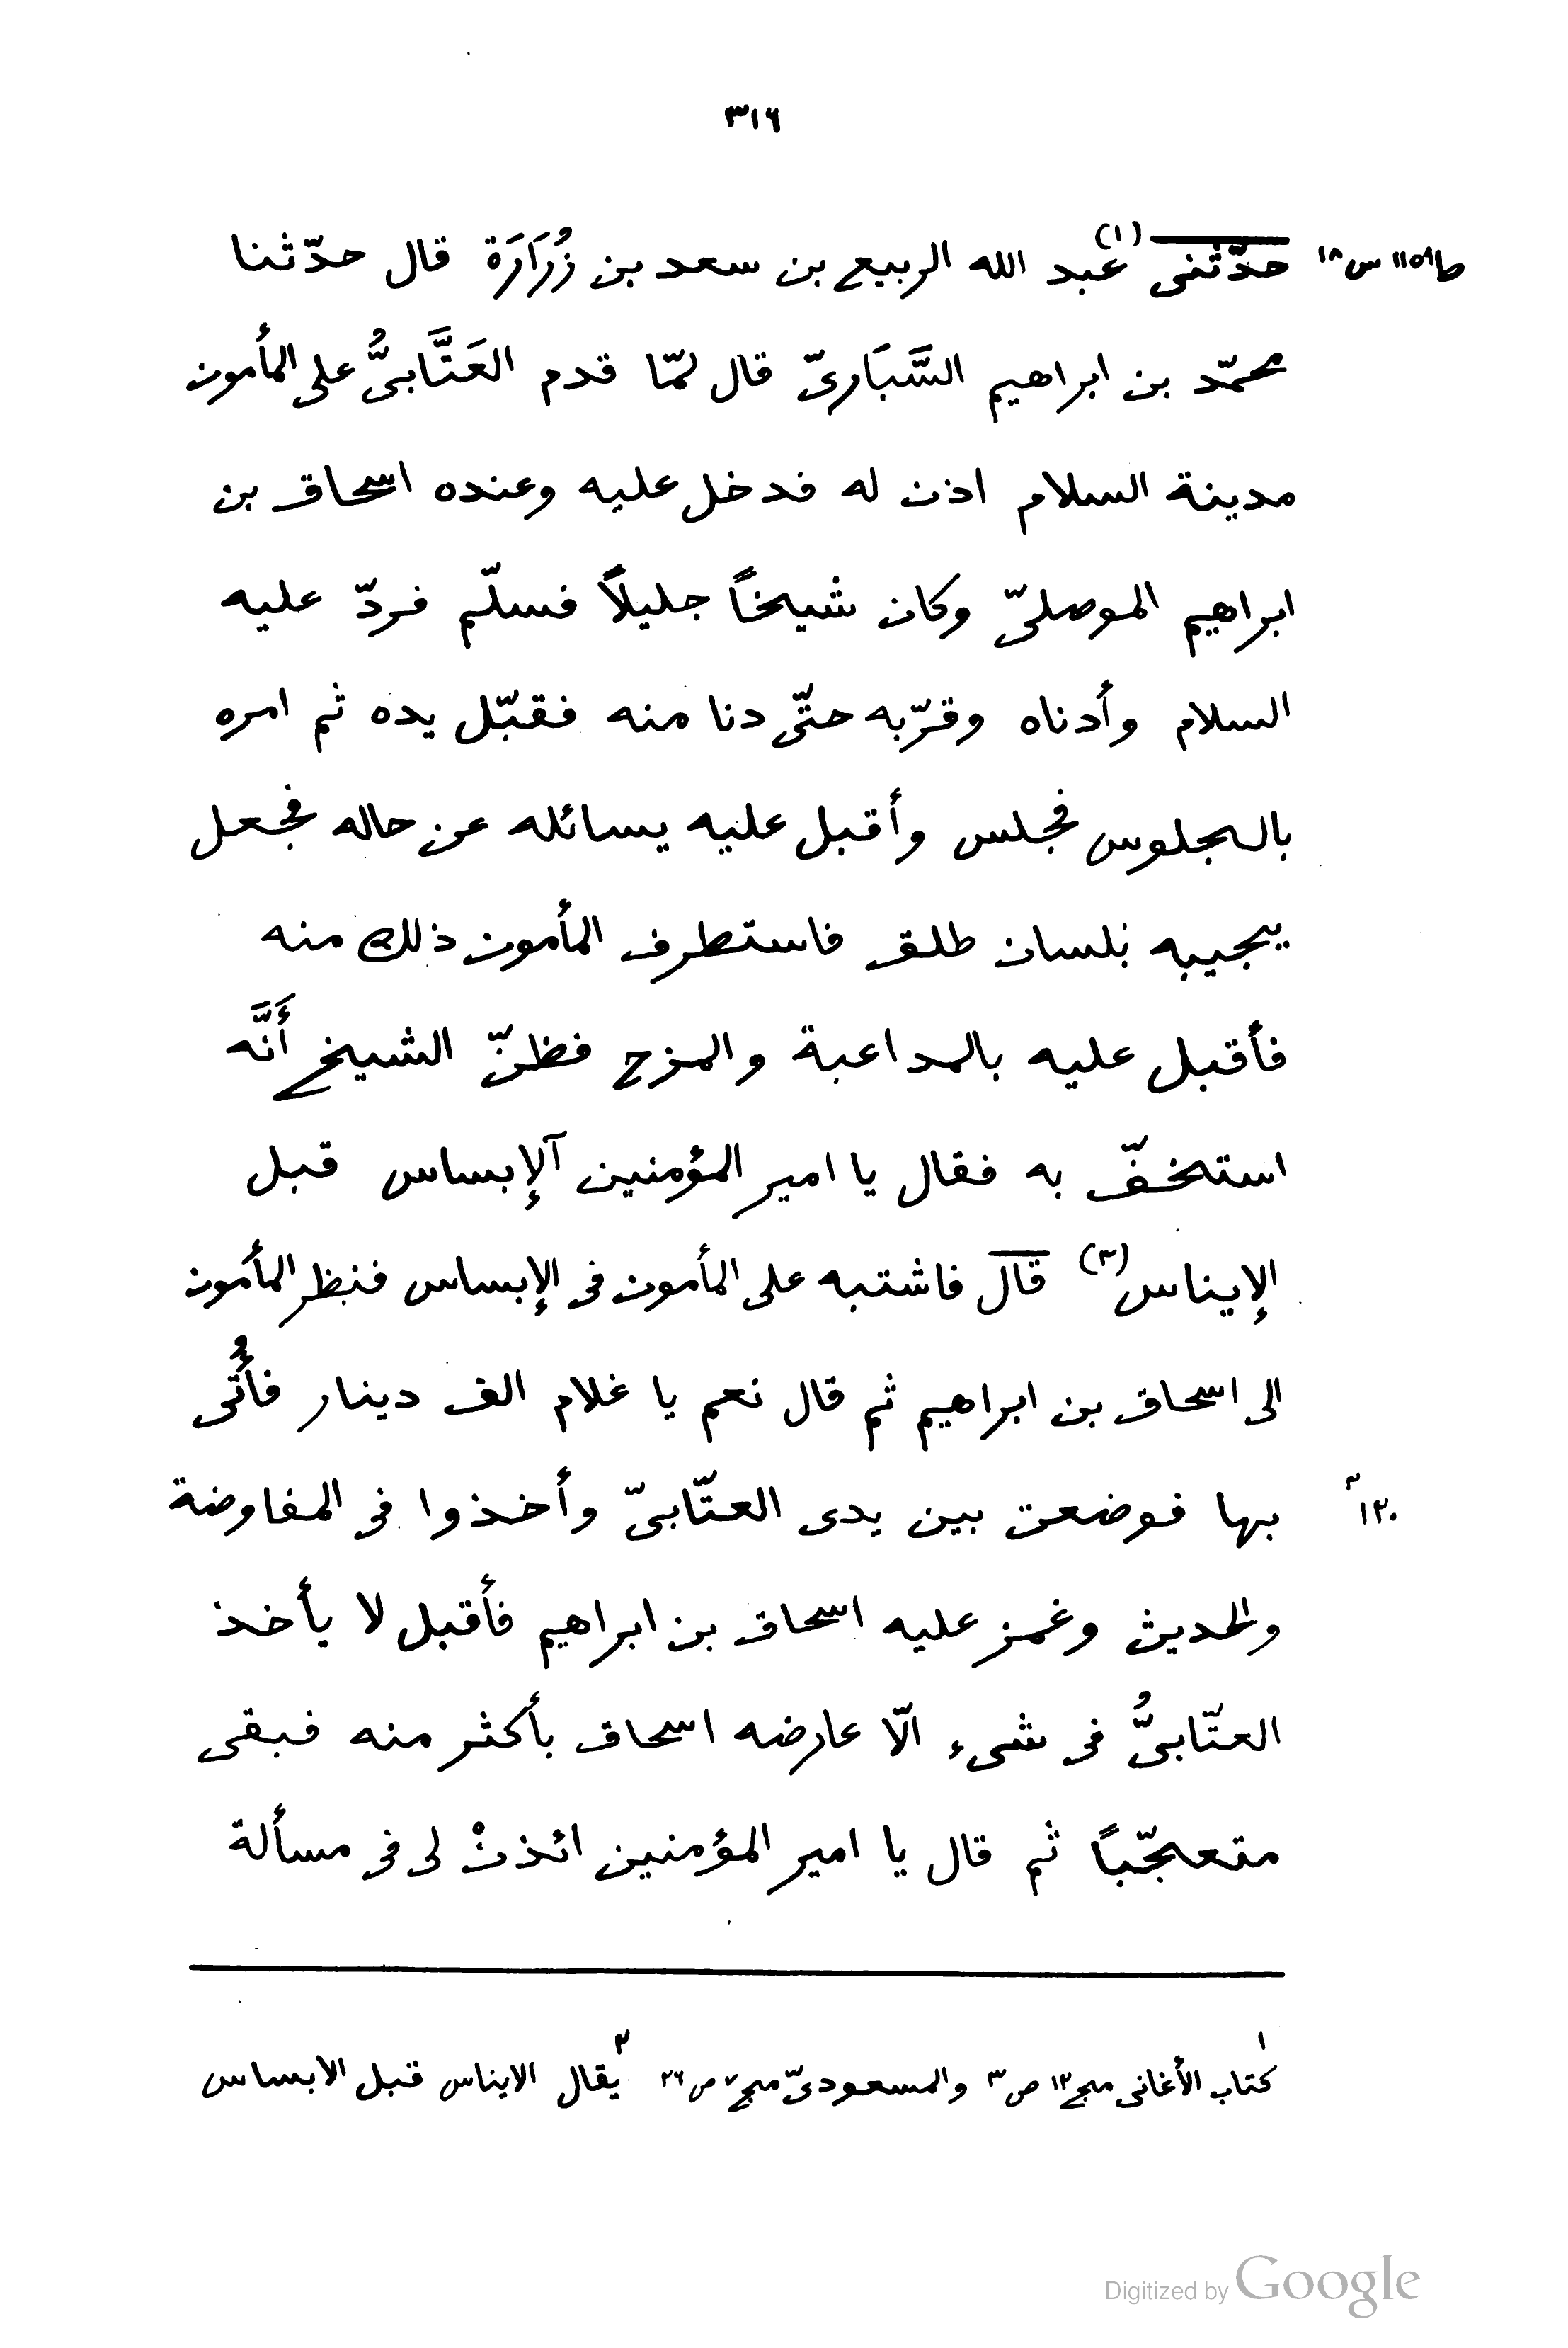 ٣١٦
حدّثنى (١) عبد الله الربيع بن سعد بن زُرَارَة قال حدّثنا
ط ١١٥٩ س ١٨
محمّد بن ابراهيم السَّيَارىّ قال لمّا قدم العَتَّابىُّ على المأمون
مدينة السلام اذن له فدخل عليه وعنده اسحاق بن
ابراهيم الموصلىّ وكان شيخًا جليلًا فسلّم فردّ عليه
السلام وأدناه وقرّبه حتّى دنا منه فقبّل يده ثم امره
بالجلوس فجلس وأقبل عليه يسائله عن حاله فجعل
يجيبه بلسان طلق فاستطرف المأمون ذلك منه
فأقبل عليه بالمداعبة والمزح فظنّ الشيخ أَنَّه
استخفّ به فقال يا امير المؤمنين آلإبساس قبل
الإيناس (٢) قال فاشتبه على المأمون فى الإبساس فنظر المأمون
الى اسحاق بن ابراهيم ثم قال نعم يا غلام الف دينار فأُتى
بها فوضعت بين يدى العتّابىّ وأخذوا فى المفاوضة
١٢٠
والحديث وغمز عليه اسحاق بن ابراهيم فأقبل لا يأخذ
العتّابىُّ فى شىء الّا عارضه اسحاق بأكثر منه فبقى
متعجّبًا ثم قال يا امير المؤمنين ائذنْ لى فى مسألة
١ كتاب الأغانى مج ١٢ ص ٣ والمسعودىّ مج ٧ ص ٢٦ ٢ يقال الايناس قبل الابساس
Digitized by Google